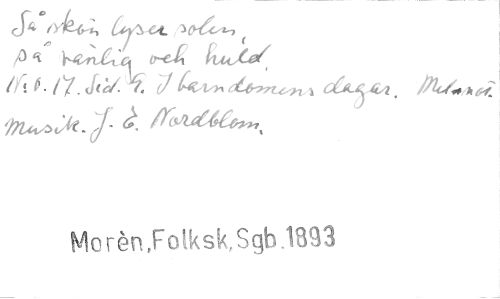 Så skön lyser solen,
så vänlig och huld.
No. 17. Sid. 9. I barndomens dagar. Mel. not.
Musik. J. E. Nordblom.
Morèn,Folksk,Sgb.1893